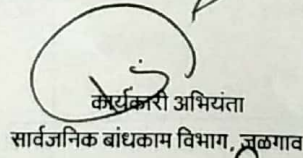 कार्यकारी अभियंता
सार्वजनिक बांधकाम विभाग, जळगाव